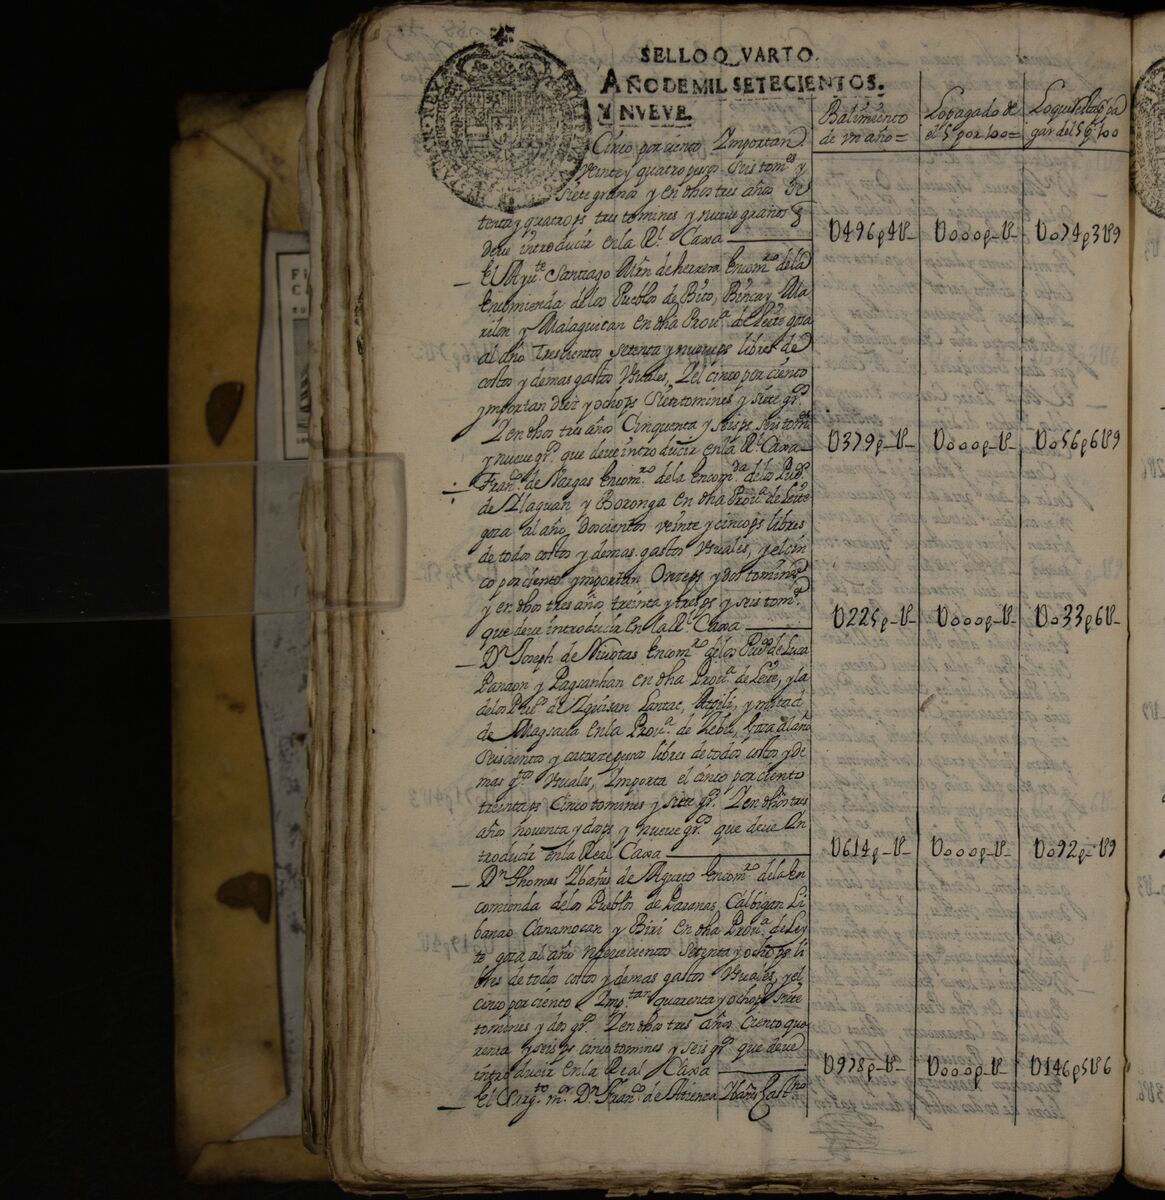 SELLO QVARTO.
AÑO DE MIL SETECIENTOS.
Y NVEVE.
Balimiento de vn año=
Lo pagado de el 5 por 100=
Lo que resta pagar del 5 p 100
Cinco por ciento Ymportan
veinte y quatro pesos seis tom.es y
siete granos y en dhos tres años Se
tenta y quatro ps tres tomines y nueve granos q
deve introducir en la Rl. Caxa
V496p4V-
Vooop-V-
Vo74p3V9
El Ayu.te Santiago Mrn de herrera Encom.ro de la
Encomienda de los Pueblos de Bito, Binca y Ma
rilon y Malaguitan en dha Prov.a de Leite goza
al año Trescientos Setenta y nueve ps libres de
costos y demas gastos Vsuales, Y el cinco por ciento
ymportan diez y ocho ps Siete tomines y siete gr.s
Y en dhos tres años Cinquenta y seis ps seis tom.es
y nueve gr.s que deve introducir en la Rl. Caxa
V379p-V-
Vooop-V-
Vo56p6V9
Fran.co de Vargas Encom.ro de la Encom.da de los Pueb.s
de Ylaguan y Boronga en dha Prov.a de Leite
goza al año Doscientos veinte y cinco ps libres
de todos costos y demas gastos Vsuales, y el cin
co por ciento ymportan Onze ps y dos tomines
y en dhos tres años treinta y tres ps y seis tom.s
que deve introducir en la Rl. Caxa
V225p-V-
Vooop-V-
Vo33p6V-
Dn. Joseph de Encom.ro de los Pueb.s de Luca
Panaon y Pagsanhan en dha Prov.a de Leite, y la
de los Pueb.s de y mitad
de en la Prov.a de Zebu, goza al año
Seiscientos y catorze pesos libres de todos costos y de
mas g.tos Vsuales, Ymporta el cinco por ciento
treinta ps Cinco tomines y siete gr.s Y en dhos tres
años noventa y dos ps y nueve gr.s que deve In
troducir en la Real Caxa
V614p-V-
Vooop-V-
Vo92p-V9
Dn. Thomas Ybañes de Encom.ro de la En
comienda de los Pueblos de Paranas, Calbigan Li
banao Canamocan y Biri en dha Prov.a de Ley
te goza al año novecientos Setenta y ocho ps li
bres de todos costos y demas gastos Vsuales, y el
cinco por ciento Imp.tan quarenta y ocho ps siete
tomines y dos gr.s Y en dhos tres años Ciento qua
renta y seis ps cinco tomines y seis gr.s que deve
introducir en la Real Caxa
V978p-V-
Vooop-V-
V146p5V6
El Sarg.to m.or Dn. Fran.co de Atienza Ybañes